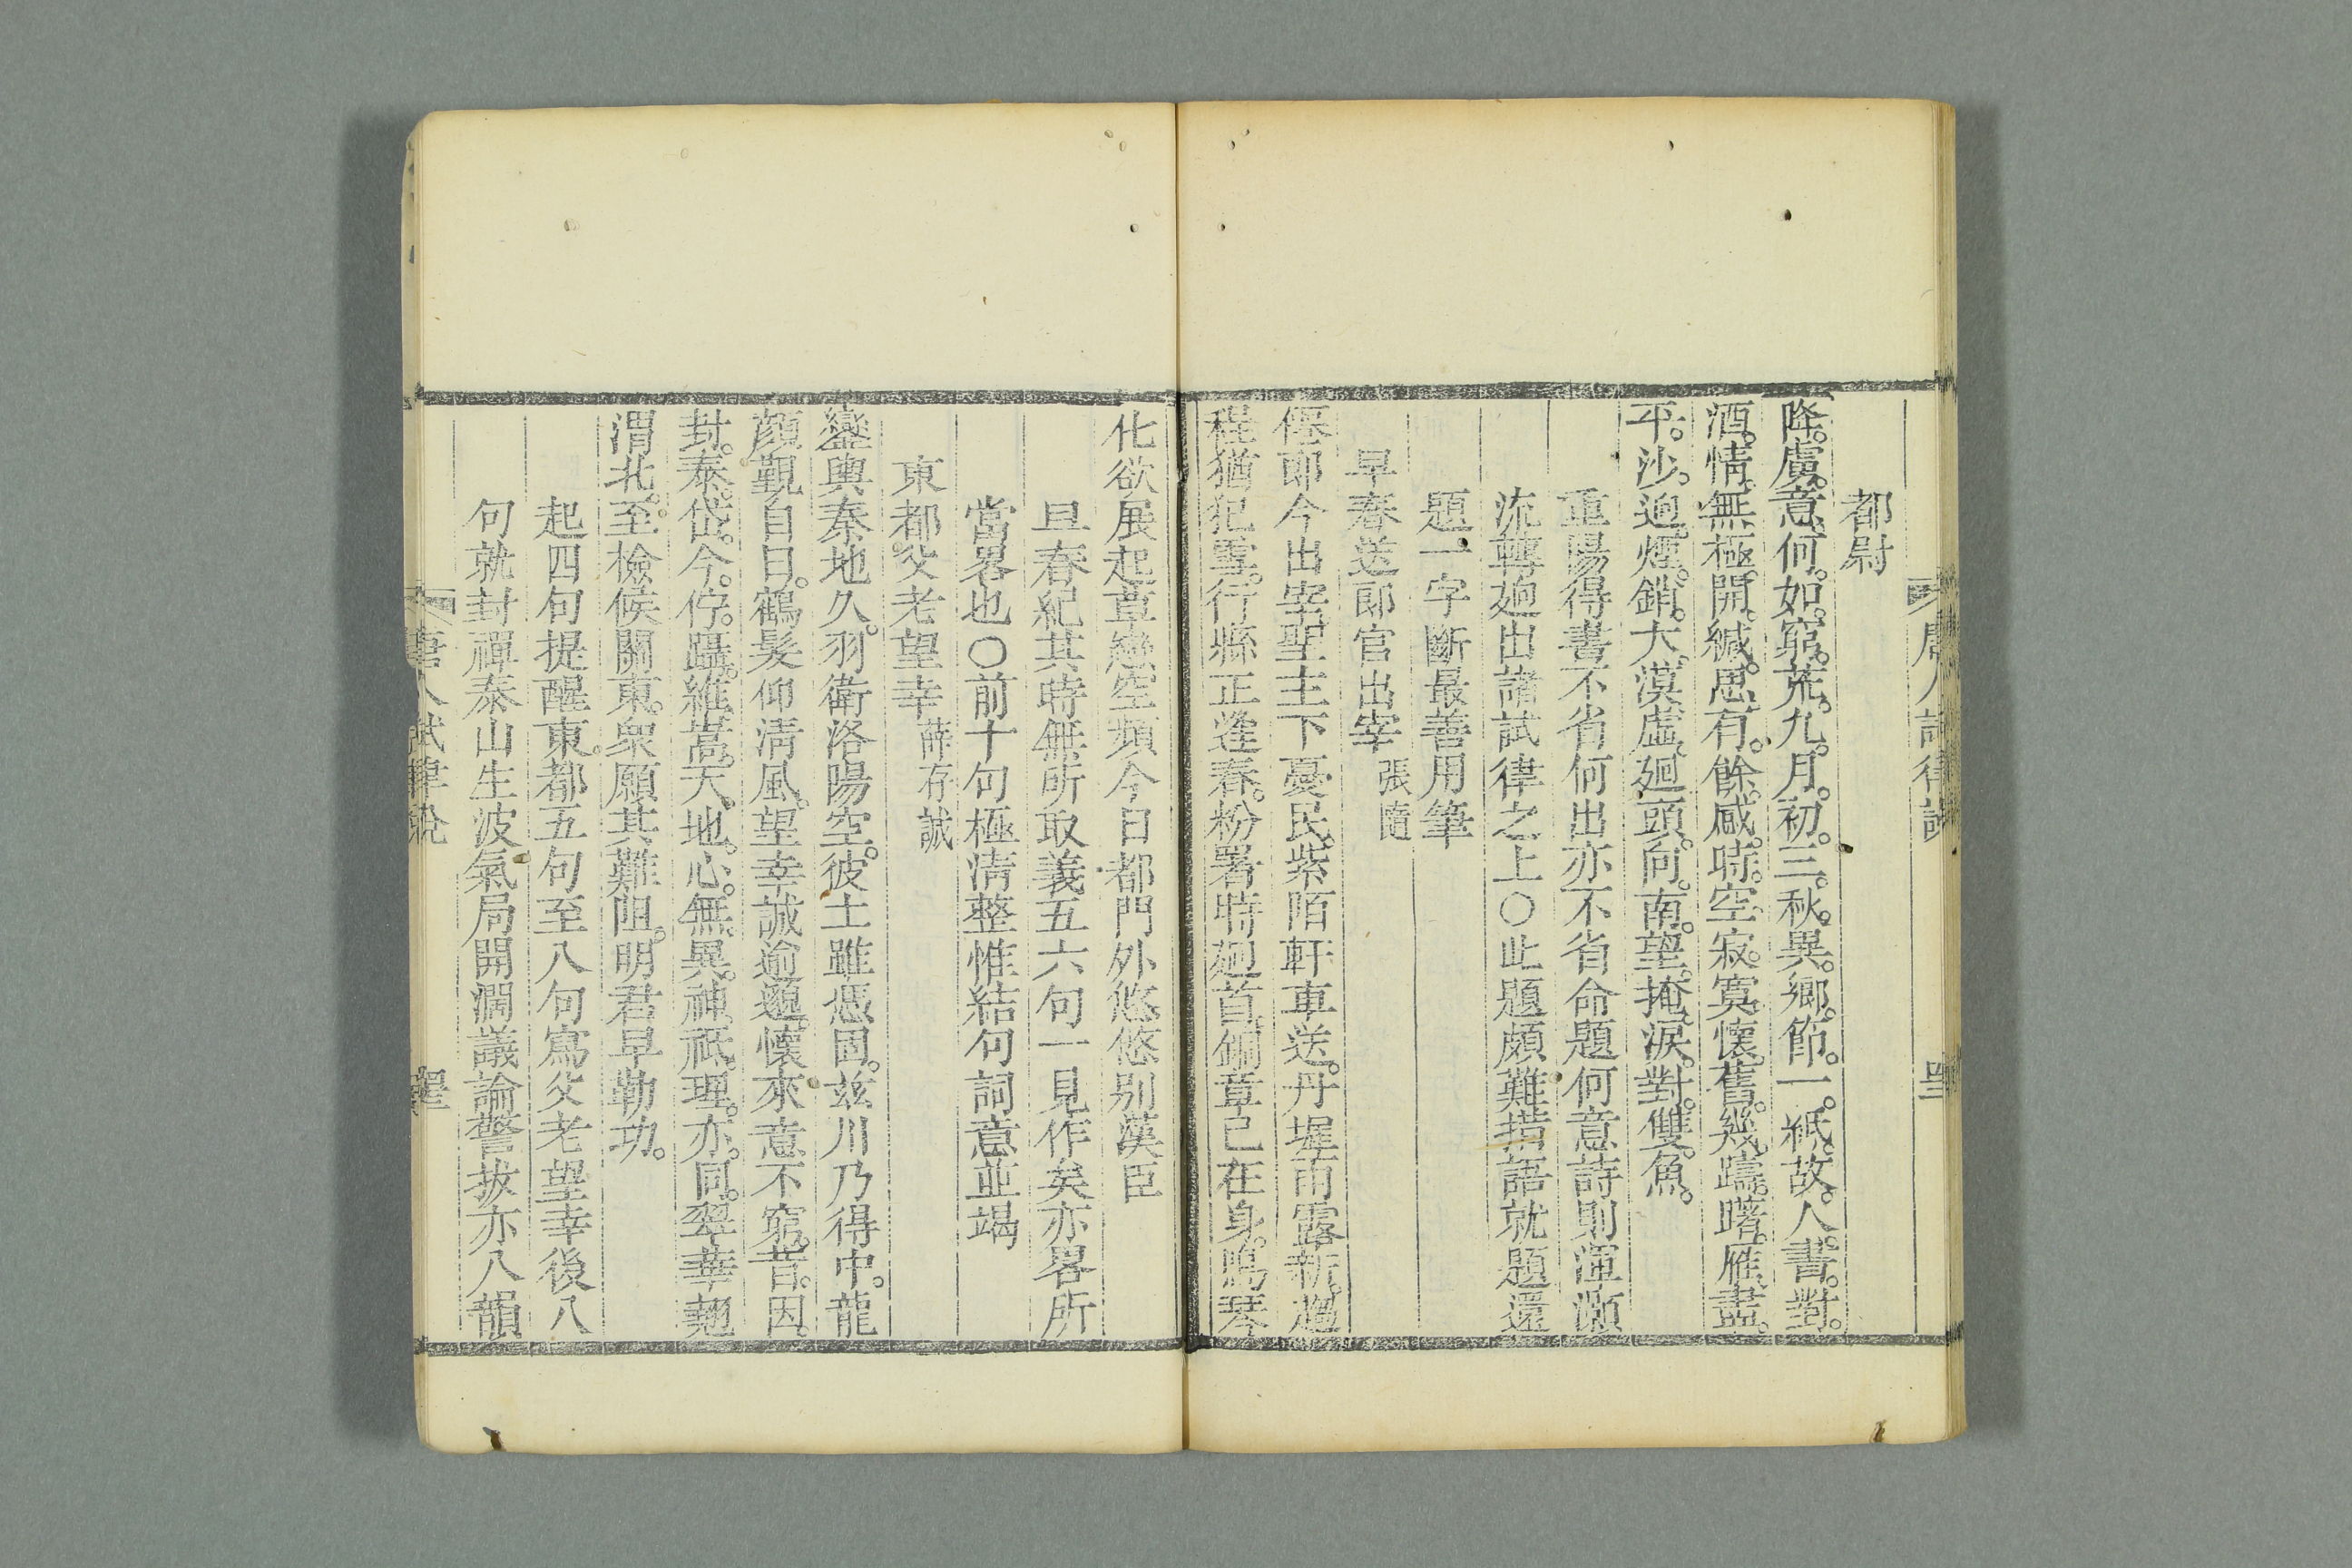 唐人試律說
都尉
降虜意何如窮荒九月初三秋異鄉節一紙故人書對
酒情無極開緘思有餘感時空寂寞懷舊幾躊躇雁盡
平沙迥煙銷大漠虛廻頭向南望掩淚對雙魚
重陽得書不省何出亦不省命題何意詩則渾灝
流轉廻出諸試律之上○此題頗難措語就題還
題一字斷最善用筆
早春送郎官出宰 張隨
仍郎今出宰聖主下憂民紫陌軒車送丹墀雨露新趨
程猶犯雪行縣正逢春粉署時廻首銅章已在身鳴琴
化欲展起草戀空頻今日都門外悠悠別漢臣
且春紀其時無所取義五六句一見作矣亦畧所
當畧也○前十句極淸整惟結句詞意並竭
東都父老望幸 薛存誠
鑾輿秦地久羽衛洛陽空彼土雖憑固兹川乃得中龍
顏覲白日鶴髮仰淸風望幸誠逾邈懷來意不窮昔因
封泰岱今佇躡維嵩天地心無異神祇理亦同翠華翹
渭北至檢候關東衆願其難阻明君早勒功
起四句提醒東都五句至八句寫父老望幸後八
句就封禪泰山生波氣局開濶議論警拔亦八韻
唐人試律說